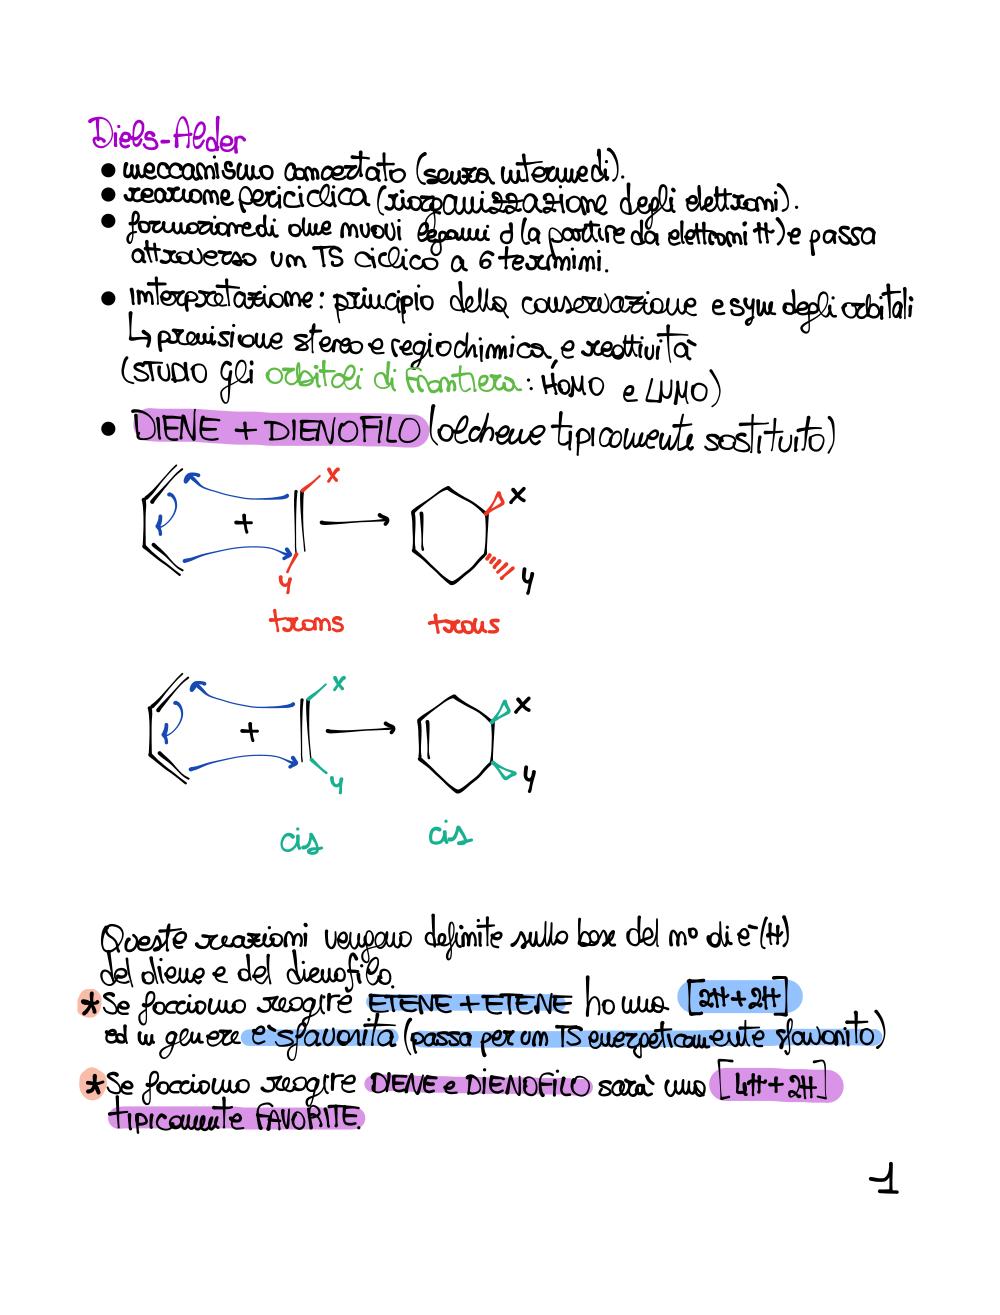 Diels-Alder
• meccanismo concertato (senza intermedi).
• reazione periciclica (riorganizzazione degli elettroni).
• formazione di due nuovi legami σ (a partire da elettroni π) e passa
attraverso un TS ciclico a 6 termini.
• Interpretazione: principio della conservazione e sym degli orbitali
↳ previsione stereo e regiochimica, e reattività
(STUDIO gli orbitali di frontiera: HOMO e LUMO)
• DIENE + DIENOFILO (alchene tipicamente sostituito)
x
x
+
y
y
trans trans
x
x
+
y
y
cis cis
Queste reazioni vengono definite sulla base del n° di e⁻(π)
del diene e del dienofilo.
* Se facciamo reagire ETENE + ETENE ho una [2π+2π]
ed in genere è sfavorita (passa per un TS energeticamente sfavorito)
* Se facciamo reagire DIENE e DIENOFILO sarà una [4π+2π]
tipicamente FAVORITE.
1